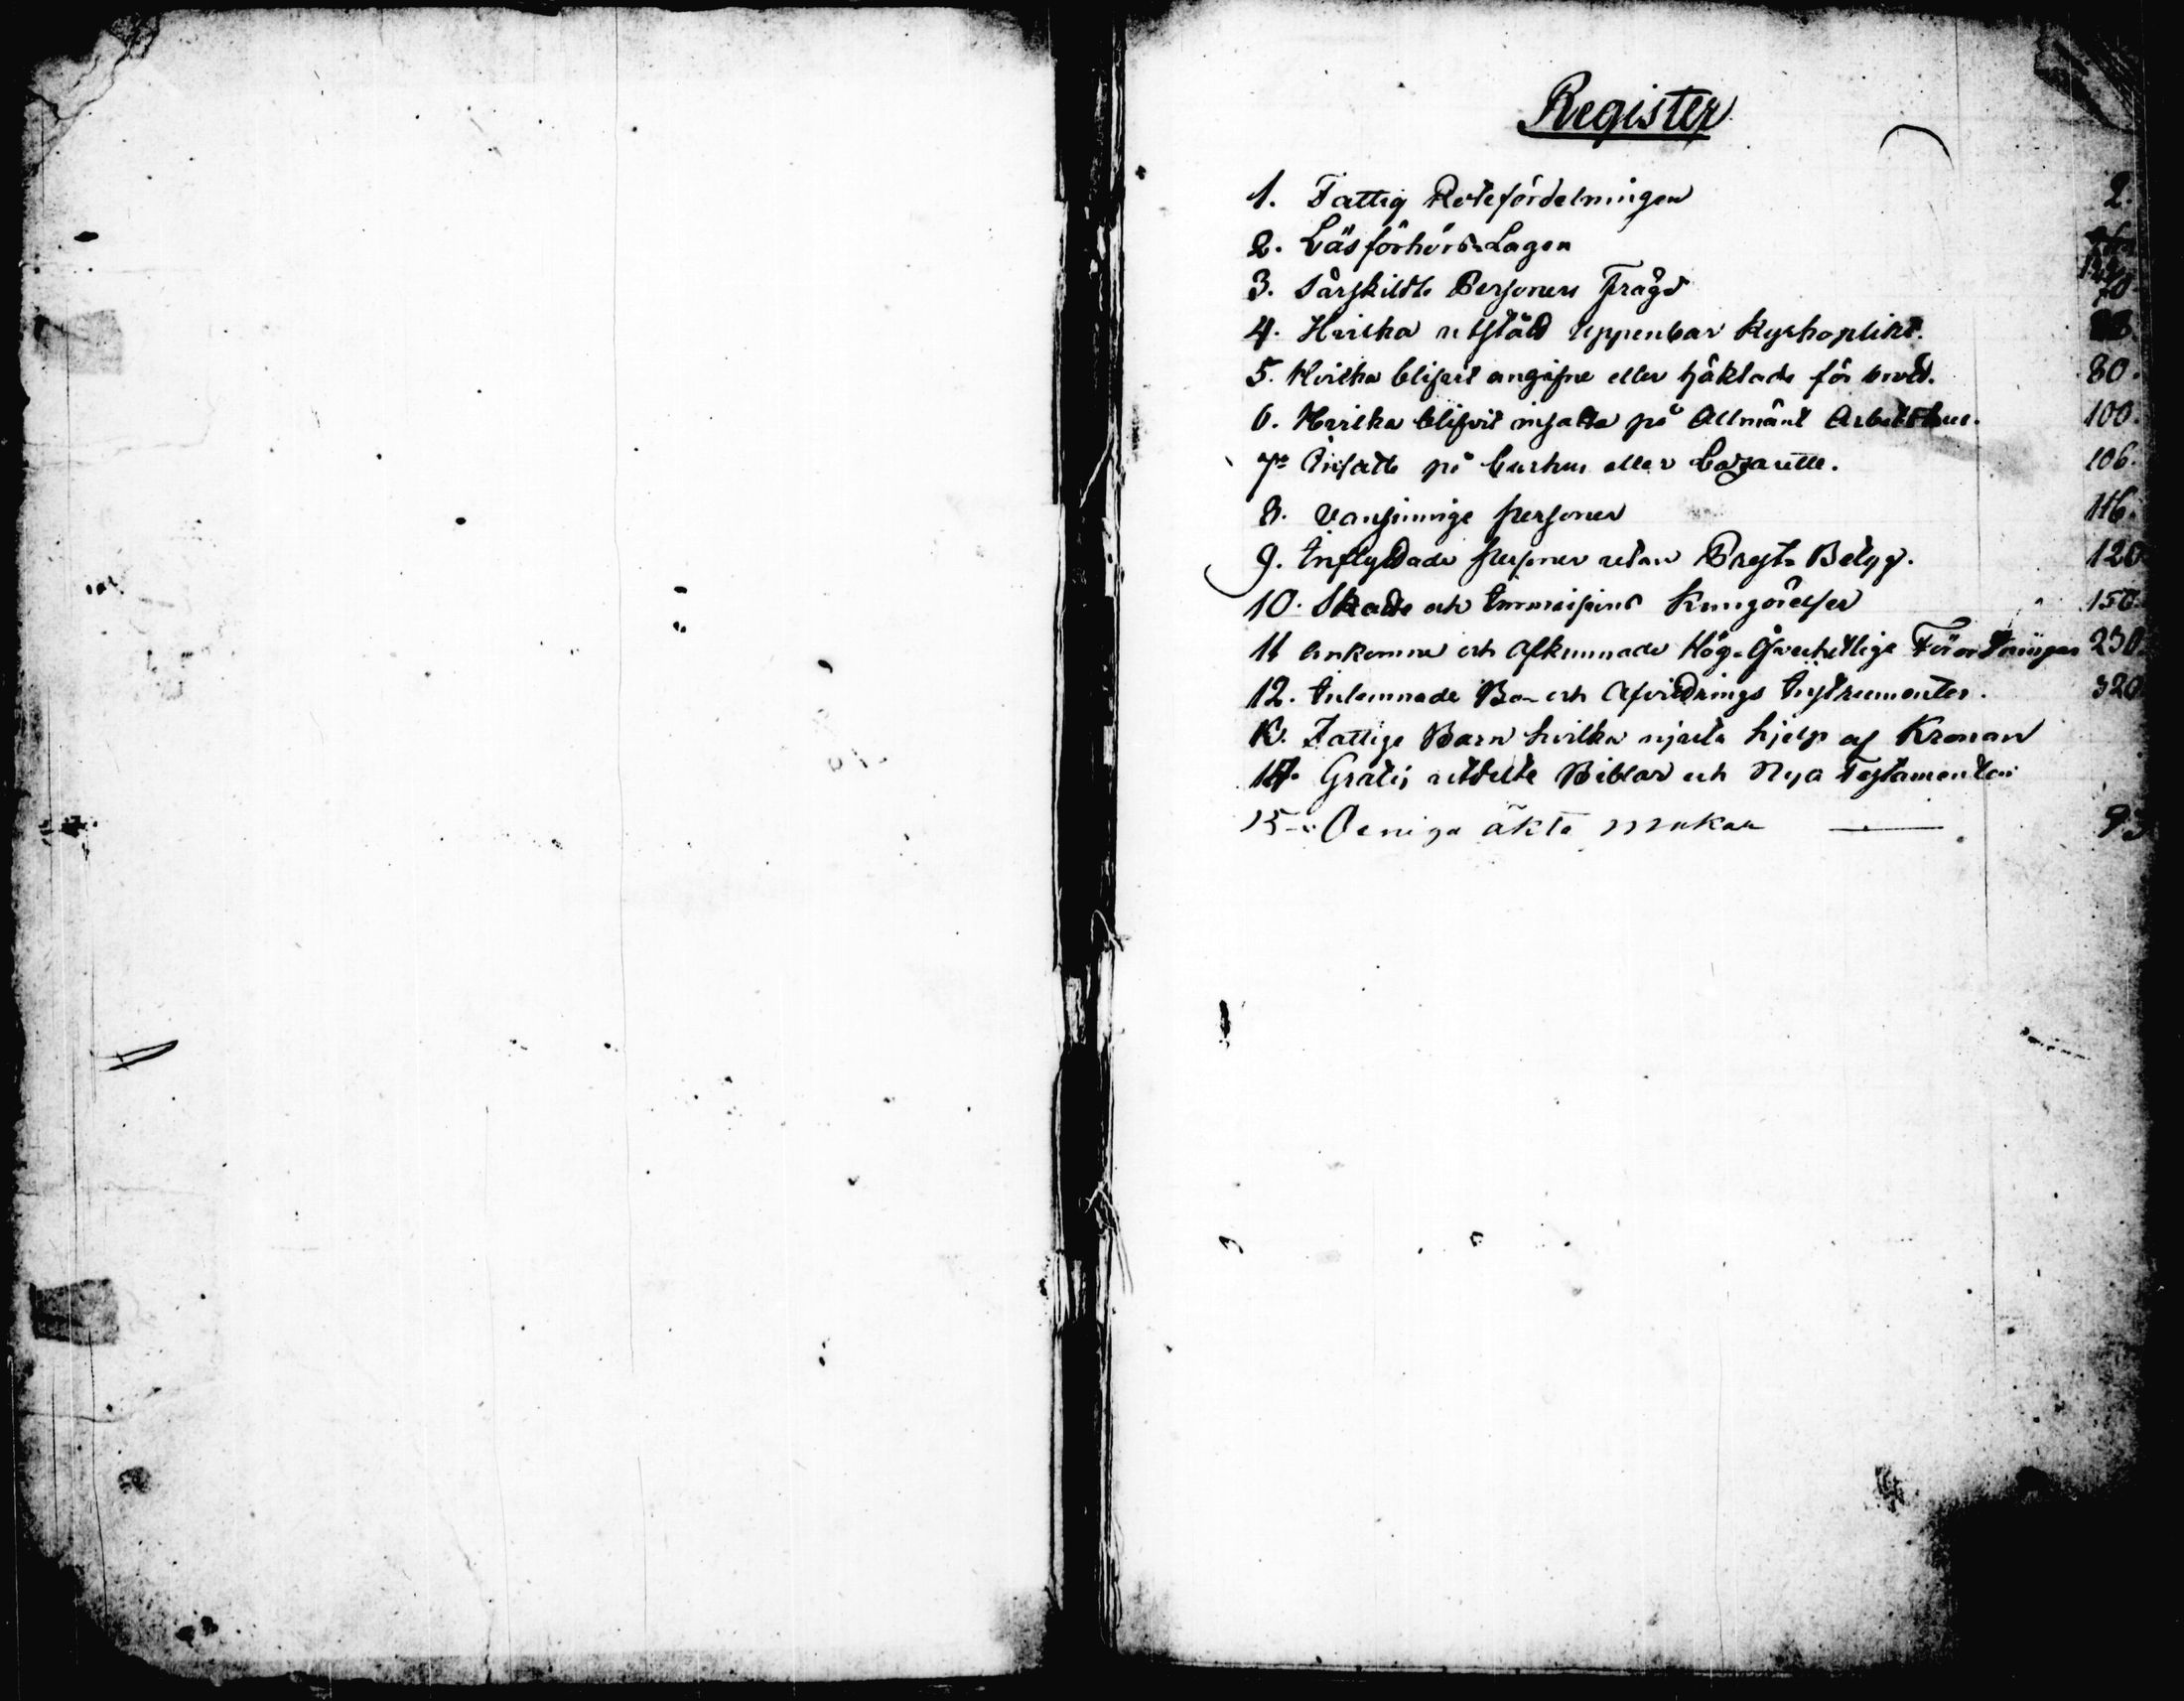 Register
1. Fattig Rotefördelningen 2.
2. Läsförhörs-Lagen
3. Särskildte Personers Frägd 70
4. Hvilka utstådt uppenbar Kyrkoplikt.
5. Hvilka blifvit angifne eller häktade för brott. 80.
6. Hvilka blifvit insatta på Allmänt Arbetshus. 100.
7. Insatte på Curhus eller Lazarette. 106.
8. Vansinnige personer 116.
9. Inflyttade personer utan Prest-Betyg. 120
10. Skatte och Kungörelser 150.
11 Ankomne och afkunnade Hög-Öfverhetlige Förordningar 230.
12. Inlemnade Bo- och Afvittrings Instrumenter. 320
13. Fattige Barn hvilka njuta hjelp af Kronan
14. Gratis utdelte Biblar och Nya Testamenten
15. Oeniga äkta makar 93